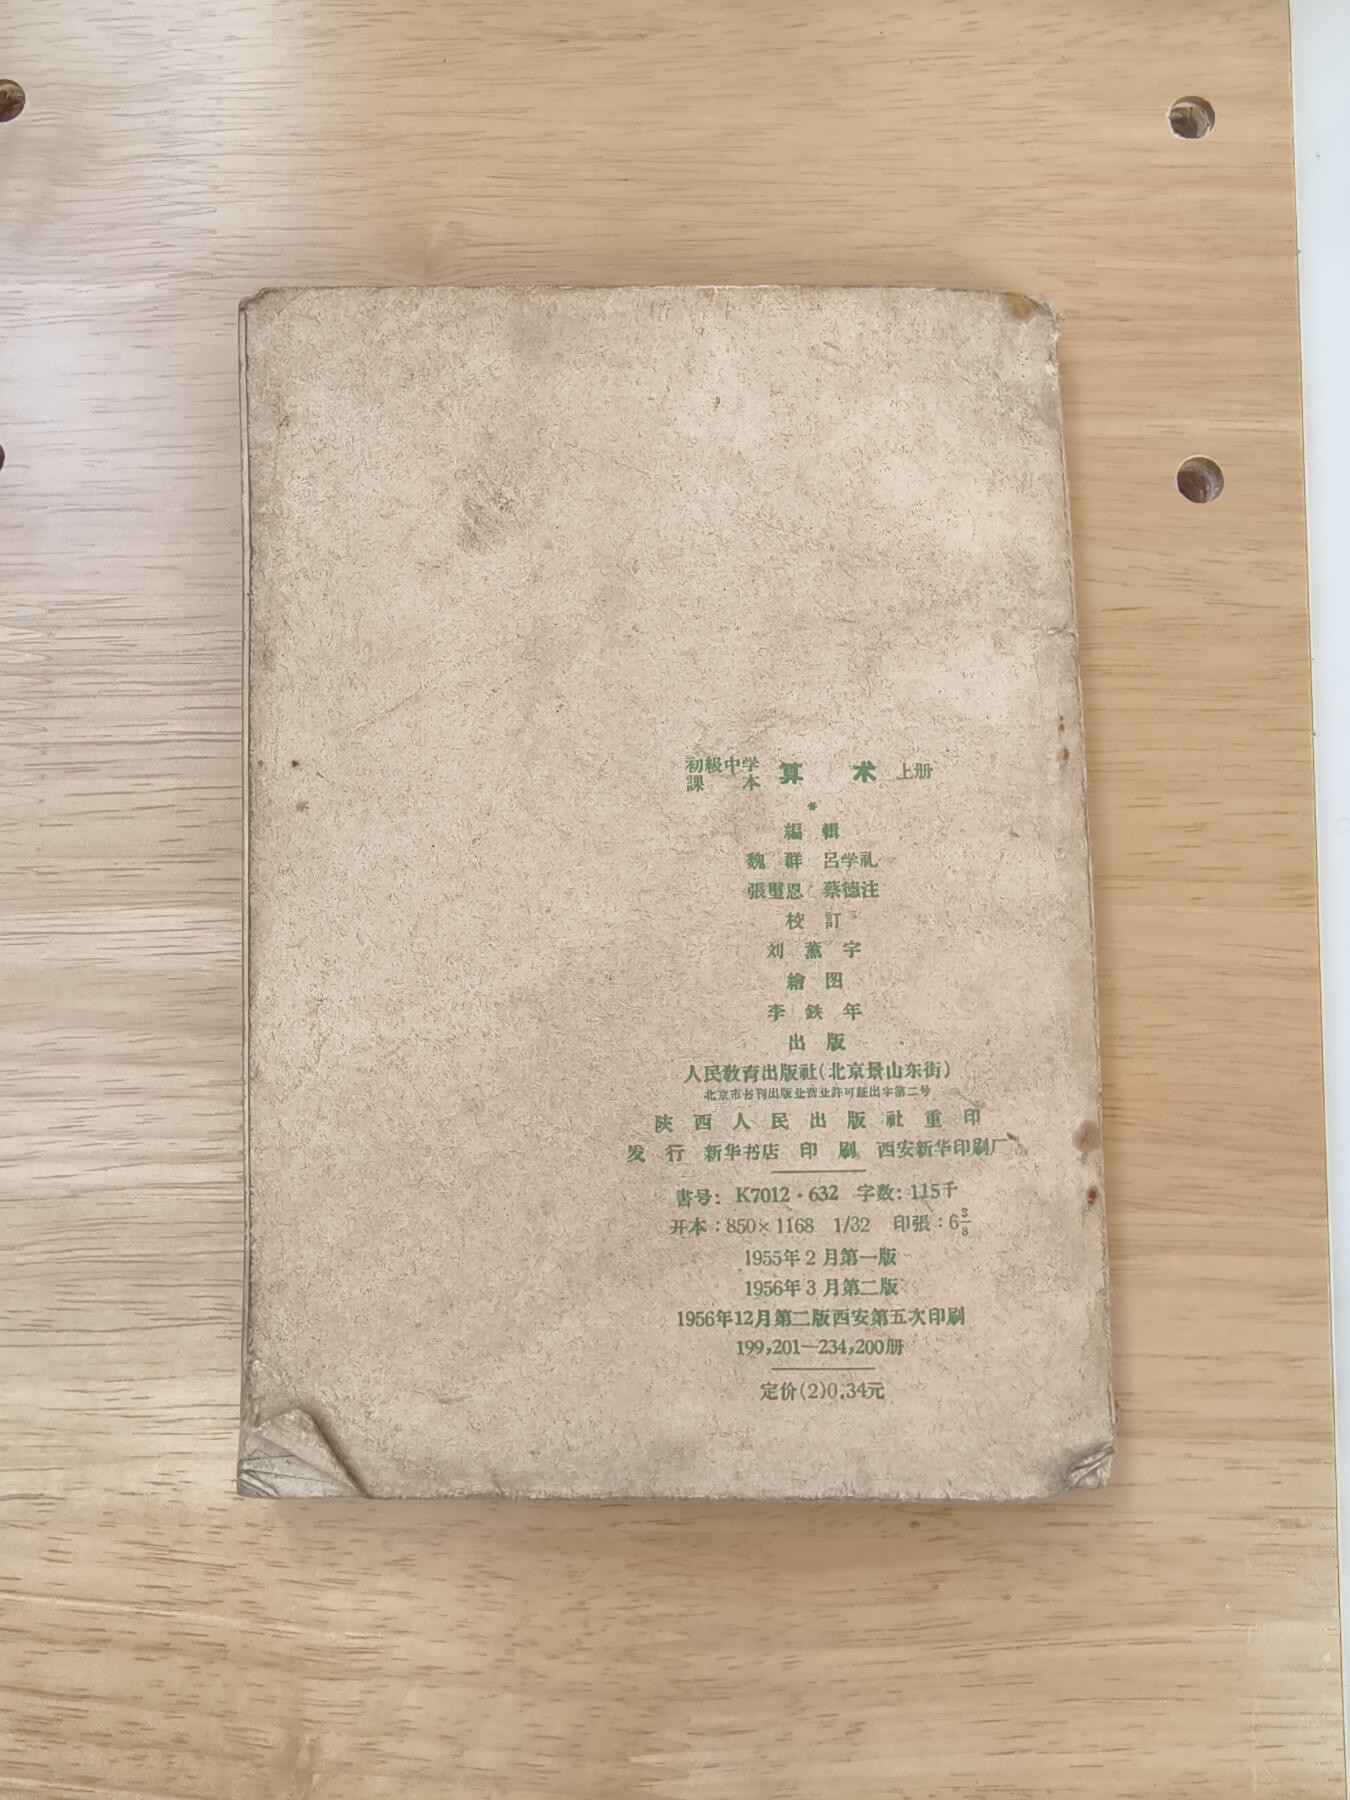 初級中学
課本 算术 上册
*
編輯
魏群 呂学礼
張璽恩 蔡德注
校訂
刘薰宇
繪图
李鉄年
出版
人民教育出版社(北京景山东街)
北京市书刊出版业营业許可証出字第二号
陕西人民出版社重印
发行 新华书店 印刷 西安新华印刷厂
書号: K7012·632 字数: 115千
开本:850×1168 1/32 印張:6 3/8
1955年2月第一版
1956年3月第二版
1956年12月第二版西安第五次印刷
199,201—234,200册
定价(2)0.34元